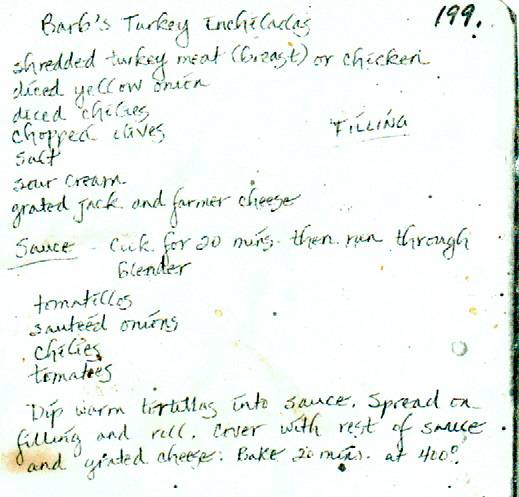 Barb's Turkey Enchiladas 199.
shredded turkey meat (breast) or chicken
diced yellow onion
diced chilies
chopped olives FILLING
salt
sour cream
grated jack and farmer cheese
Sauce - Cook for 20 mins. then run through
blender
tomatillos
sauteéd onions
chilies
tomatoes
Dip warm tortillas into sauce. Spread on
filling and roll. Cover with rest of sauce
and grated cheese. Bake 20 mins. at 400°.